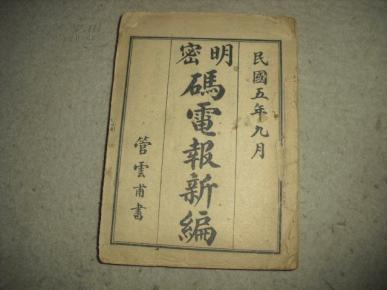 民國五年九月
明密碼電報新編
管雲甫書